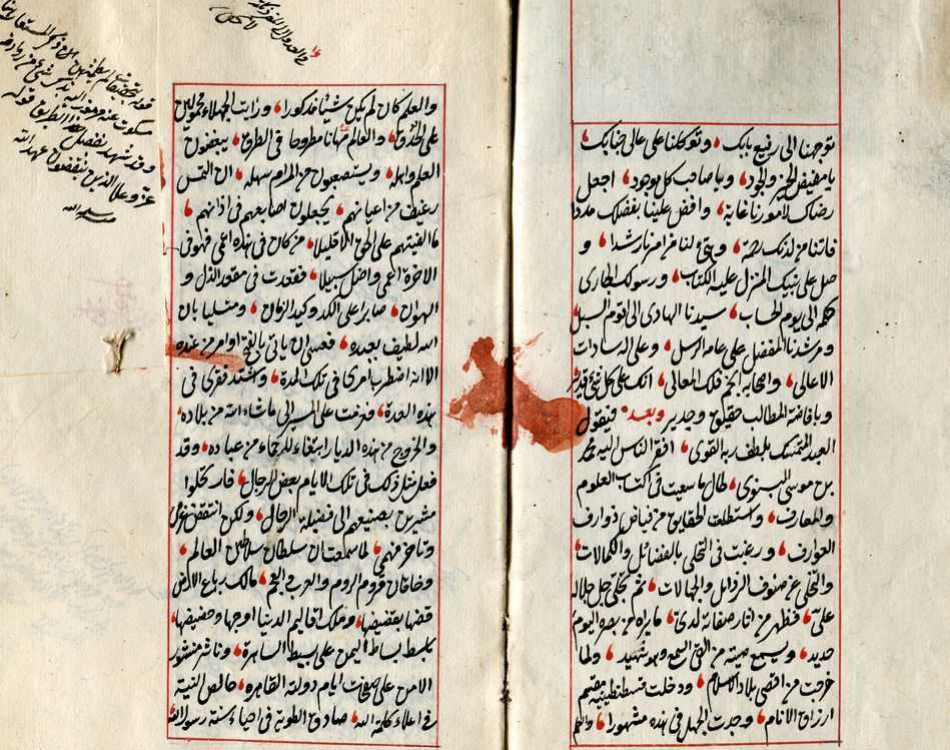 توجهنا الى رفيع بابك وتوكلنا على عالى جنابك
يا مفيض الخير والجود ويا صاحب كل موجود اجعل
رضاك لامورنا غاية وافض علينا بفضلك مددا
فاتنا من لدنك رحمة وهيئ لنا من امرنا رشدا و
صل على نبيك المنزل عليه الكتاب ورسولك الجارى
حكمه الى يوم الحساب سيدنا الهادى الى قوم السبل
ومرشدنا المفضل على عامة الرسل وعلى اله سادات
الاعالى واصحابه انجم فلك المعالى انك على كل شئ قدير
وبافاضة المطالب حقيق وجدير وبعد فيقول
العبد المتمسك بلطف ربه القوى افقر الناس اليه محمد
بن موسى البسنوى طال ما سعيت فى اكتساب العلوم
والمعارف واستطلعت الحقايق من فياض ذوارف
العوارف ورغبت فى التحلى بالفضائل والكمالات
والتخلى عن صنوف الرذائل والجهالات ثم تجلى جل جلاله
على فظهر من اثار صفاته لدى ما يراه من بصره اليوم
حديد ويسمع صيته من القى السمع وهو شهيد ولما
خرجت من اقصى بلاد الاسلام ودخلت قسطنطينية مقسم
ارزاق الانام وجدت الجهل فى هذه مشهورا والعلم
والعلم كان لم يكن شيئا مذكورا ورايت الجهلاء محمولين
على الحدق والعالم مهانا مطروحا فى الطرق يبغضون
العلم واهله ويستصعبون من المرام سهله ان التمس
رغيف من اعيانهم يجعلون اصابعهم فى اذانهم
ما الفيتهم على الحق الا قليلا من كان فى هذه اعمى فهو فى
الاخرة اعمى واضل سبيلا فقعدت فى مقعد الذل و
الهوان صابرا على الكد وكيد الزمان ومتسليا بان
الله لطيف بعبده فعسى ان ياتى بالفتح او امر من عنده
الا انه اضطرب امرى فى تلك المدة واشتد فقرى فى
هذه العدة فعزمت على السير الى ما شاء الله من بلاده
والخروج من هذه الديار ابتغاء للرحماء من عباده وقد
فعل مثل ذلك فى تلك الايام بعض الرجال فارتحلوا
مشيرين بصنيعهم الى فضيلة الرحال ولكن انتقض عزمى
وتاخر منهم لما سمعت ان سلطان سلاطين العالم
وخاقان قروم الروم والعرب والعجم مالك رباع الارض
قضها بقضيضها وملك اقاليم الدنيا اوجها وحضيضها
باسط بساط اليمن على بسيط الساهرة وناشر منشور
الامن على صفحات ايام دولته القاهرة خالص النية
فى اعلاء كلمة الله صادق الطوية فى احياء سنة رسول الله